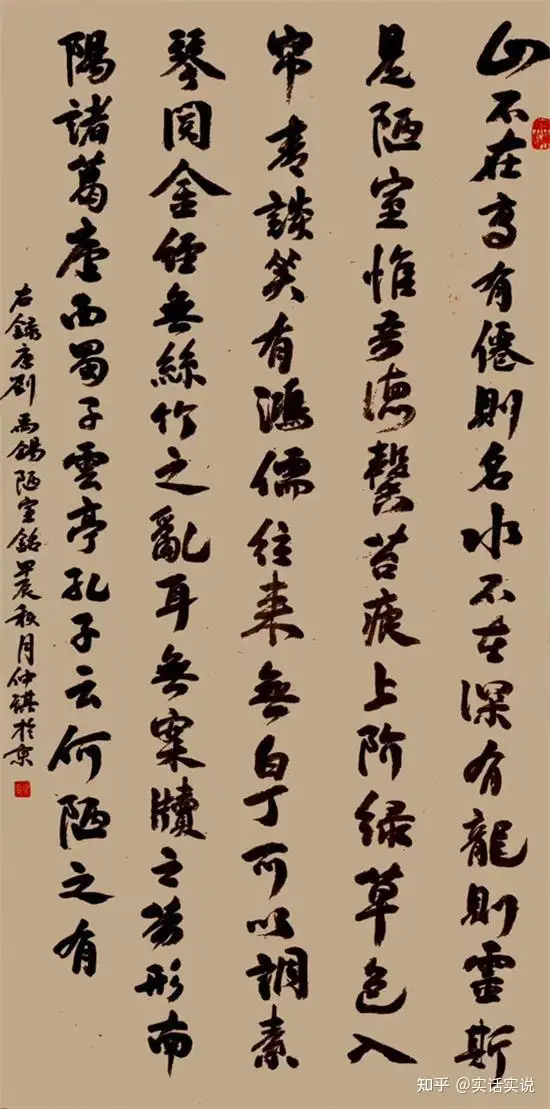 山不在高有僊則名水不在深有龍則靈斯
是陋室惟吾德馨苔痕上阶绿草色入
帘青談笑有鴻儒往来無白丁可以調素
琴閲金經無絲竹之亂耳無案牘之勞形南
陽諸葛廬西蜀子雲亭孔子云何陋之有
右錄唐劉禹錫陋室銘甲辰秋月仲祺於京
知乎 @实话实说